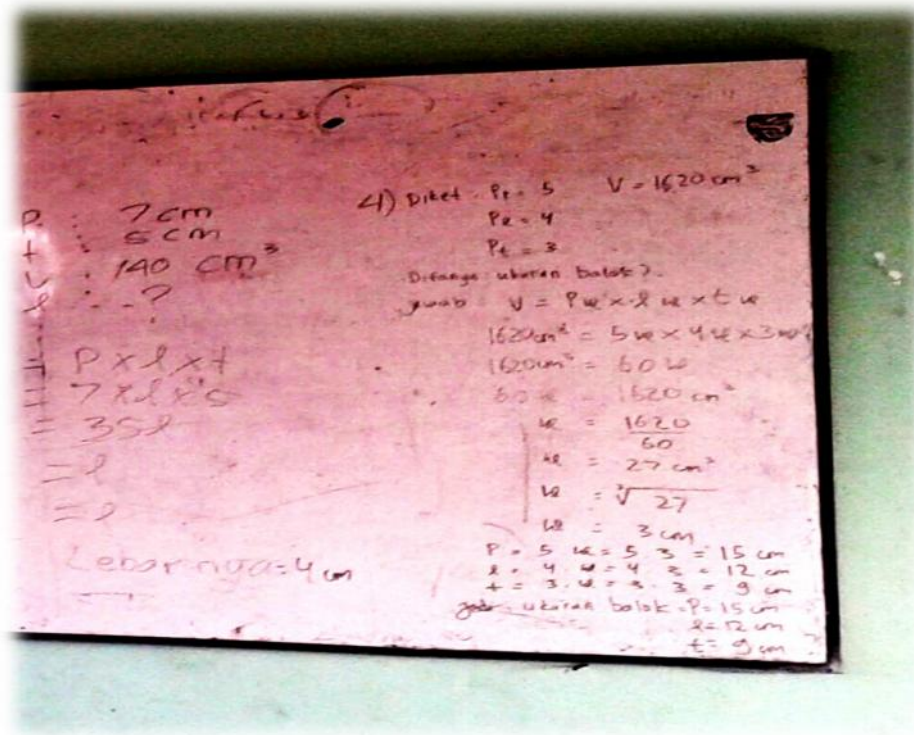 P : 7 cm
t : 5 cm
V : 140 cm³
l : ..?
P x l x t
= 7 x l x 5
= 35 l
= l
= l
Lebarnya = 4 cm
4) Diket : Pp = 5 V = 1620 cm³
Pl = 4
Pt = 3
Ditanya : ukuran balok ?
V =
1620 cm³ = 5 4 3
1620 cm³ = 60
60 = 1620 cm³
= 1620
60
= 27 cm³
= ³√27
= 3 cm
P = 5 = 5 . 3 = 15 cm
l = 4 . = 4 . 3 = 12 cm
t = 3 . = 3 . 3 = 9 cm
ukuran balok = P = 15 cm
l = 12 cm
t = 9 cm